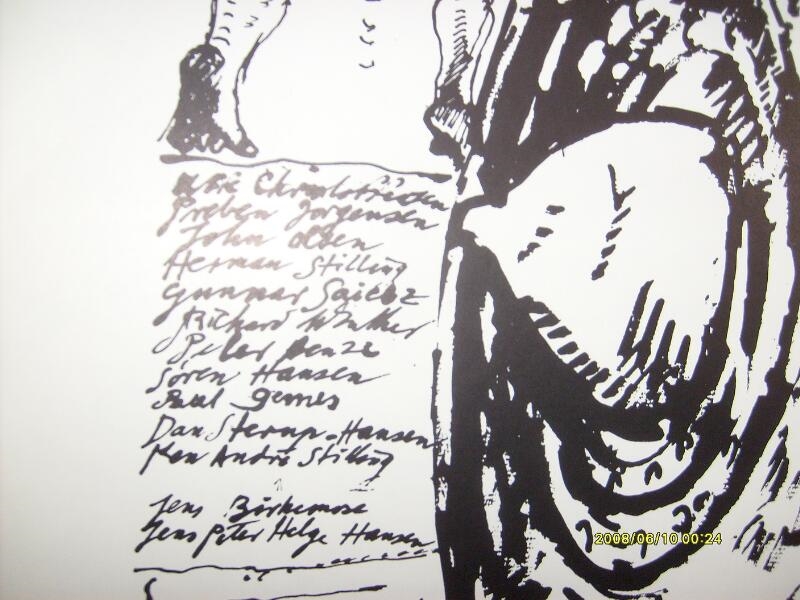 Preben Jorgensen
John Olsen
Herman Stilling
Gunnar Saietz
Richard Winther
Peter Bonze
Sören Hansen
Paul Gernes
Dan Sterup-Hansen
Ken André Stilling
Jens Birkemose
Jens Peter Helge Hansen
2008/06/10 00:24